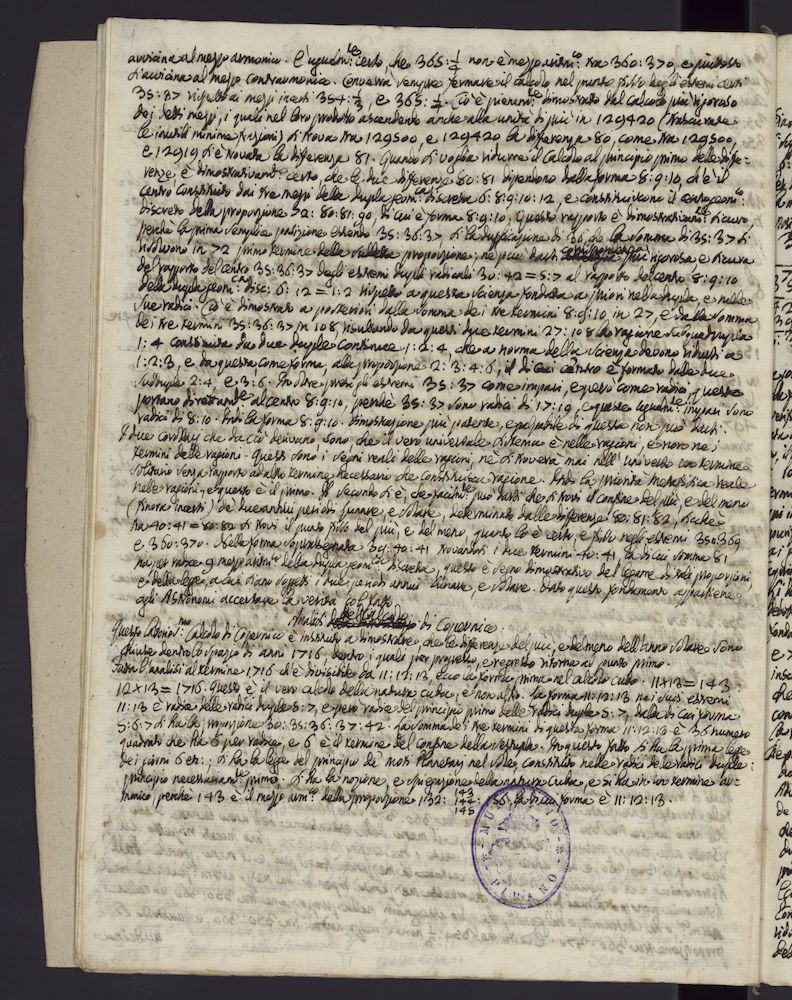 avvicina al mezzo armonico. È egualm.te certo, che 365:1/4 non è mezzo aritm.co tra 360:370, e piuttosto
s'avvicina al mezzo contrarmonico. Converrà sempre fermare il calcolo nel punto fisso degli estremi certi
35:37 rispetto ai mezzi incerti 354:1/3, e 365:1/4. Ciò è pienam.te dimostrato dal Calcolo più rigoroso
dei detti mezzi, i quali nel loro prodotto ascendendo anche alla unità di più in 129420 (trascurate
le inutili minime frazioni) si trova tra 129500, e 129420 la differenza 80, come tra 129500,
e 12919 si è trovata la differenza 81. Quando si voglia ridurre il Calcolo al principio primo delle diffe-
renze, è dimostrativam.te certo, che le due differenze 80:81 dipendono dalla forma 8:9:10, ch'è il
centro constituito dai tre mezzi della dupla geom.ca discreta 6:8:9:10:12, e constituiscono il centro geom.co
discreto della proporzione 72:80:81:90, di cui è forma 8:9:10. Questo rapporto è dimostrativam.te sicuro,
perchè la prima semplice posizione essendo 35:36:37, si la duplicazione di 36, che la somma di 35:37 si
risolvono in 72 primo termine della suddetta proporzione; nè può darsi più rigorosa e sicura
del rapporto del centro 35:36:37 degli estremi dupli radicali 30:42=5:7 al rapporto del centro 8:9:10
della dupla geom.ca disc: 6:12=1:2 rispetto a questa scienza fondata a priori nella dupla, e nelle
sue radici. Ciò è dimostrato a posteriori dalla somma dei tre termini 8:9:10 in 27, e dalla somma
dei tre termini 35:36:37 in 108, risultando da questi due termini 27:108 la ragione subquadrupla
1:4 constituita da due duple continue 1:2:4, che a norma della scienza devono ridursi a
1:2:3, e da questa come forma, alla proporzione 2:3:4:6, il di cui centro è formato dalle due
suddupla 2:4, e 3:6. In oltre presi gli estremi 35:37 come impari, e presi come radici, queste
portano direttam.te al centro 8:9:10, perchè 35:37 sono radici di 17:19, e queste egualm.te impari sono
radici di 8:10. Indi la forma 8:9:10. Dimostrazione più patente, e palpabile di questa non può darsi.
I due corollarj che da ciò derivano, sono, che il vero universale sistema è nelle ragioni, e non nei
termini delle ragioni. Questi sono i segni reali delle ragioni, nè si troverà mai nell'universo un termine
solitario senza rapporto ad altro termine necessario che constituisca ragione. Indi la priorità metafisica reale
nelle ragioni, e questo è il primo. Il secondo si è, che facilm.te può darsi che si trovi il confine del più, e del meno
(finora incerti) de' due annui periodi lunare, e solare, determinato dalle differenze 80:81:82, sicchè
tra 40:41=80:82 si trovi il punto fisso del più, e del meno, quanto lo è certo, e fisso negli estremi 350:360
e 360:370. Nella forma soprassegnata 39:40:41 trovandosi i due termini 40:41, la di cui somma 81
ha per radice 9 mezzo aritm.co della dupla geom.ca discreta, questo è segno dimostrativo del legame di tali proporzioni,
e della legge, a cui siano soggetti i due periodi annui lunare, e solare. Dato questo fondamento appartiene
agli Astronomi accertare la verità col fatto.
Analisi del Calcolo di Copernico.
Questo Astronomo.mo Calcolo di Copernico è instituito a dimostrare, che le differenze del più, e del meno dell'anno solare sono
chiuse dentro lo spazio di anni 1716, dentro i quali per progresso, e regresso ritorna al punto primo.
Fatta l'analisi al termine 1716 ch'è divisibile da 11:12:13, ecco la forma prima nel calcolo cubo. 11x13=143.
12x13=1716. Questo è il vero calcolo della natura cubica, e non altro. La forma 11:12:13 nei suoi estremi
11:13 è radice delle radici duple 5:7, e però radice del principio primo delle radici duple 5:7, dalla di cui forma
5:6:7 si ha la proporzione 30:35:36:37:42. La somma dei tre termini di questa forma 11:12:13 è 36 numero
quadrato che ha 6 per radice, e 6 è il termine del confine della sestupla. In questo fatto si ha la prima legge
dei giorni 6 etc.; si ha la legge del principio de' moti Planetarj nel Sole, constituito nelle radici delle radici duple:
principio necessariam.te primo. Si ha la nozione, e spiegazione della natura cubica, e si ha in un termine ar-
monico, perchè 143 è il mezzo arm.co della proporzione 132:143:144:156, la di cui forma è 11:12:13.
145
PIRANO